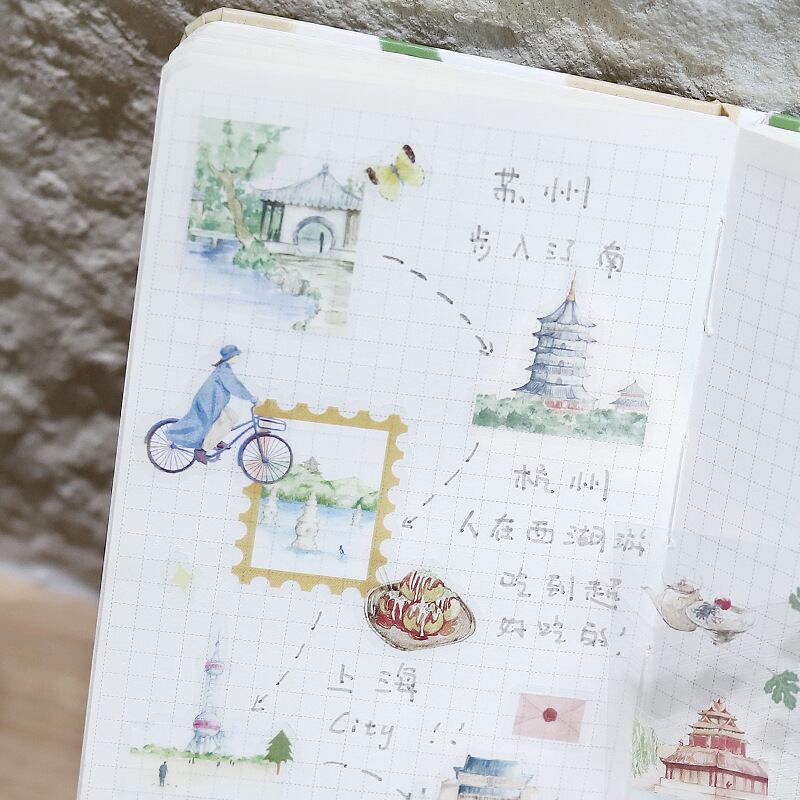 苏州
步入江南
杭州
人在西湖游
吃到超
好吃的!
上海
City !!